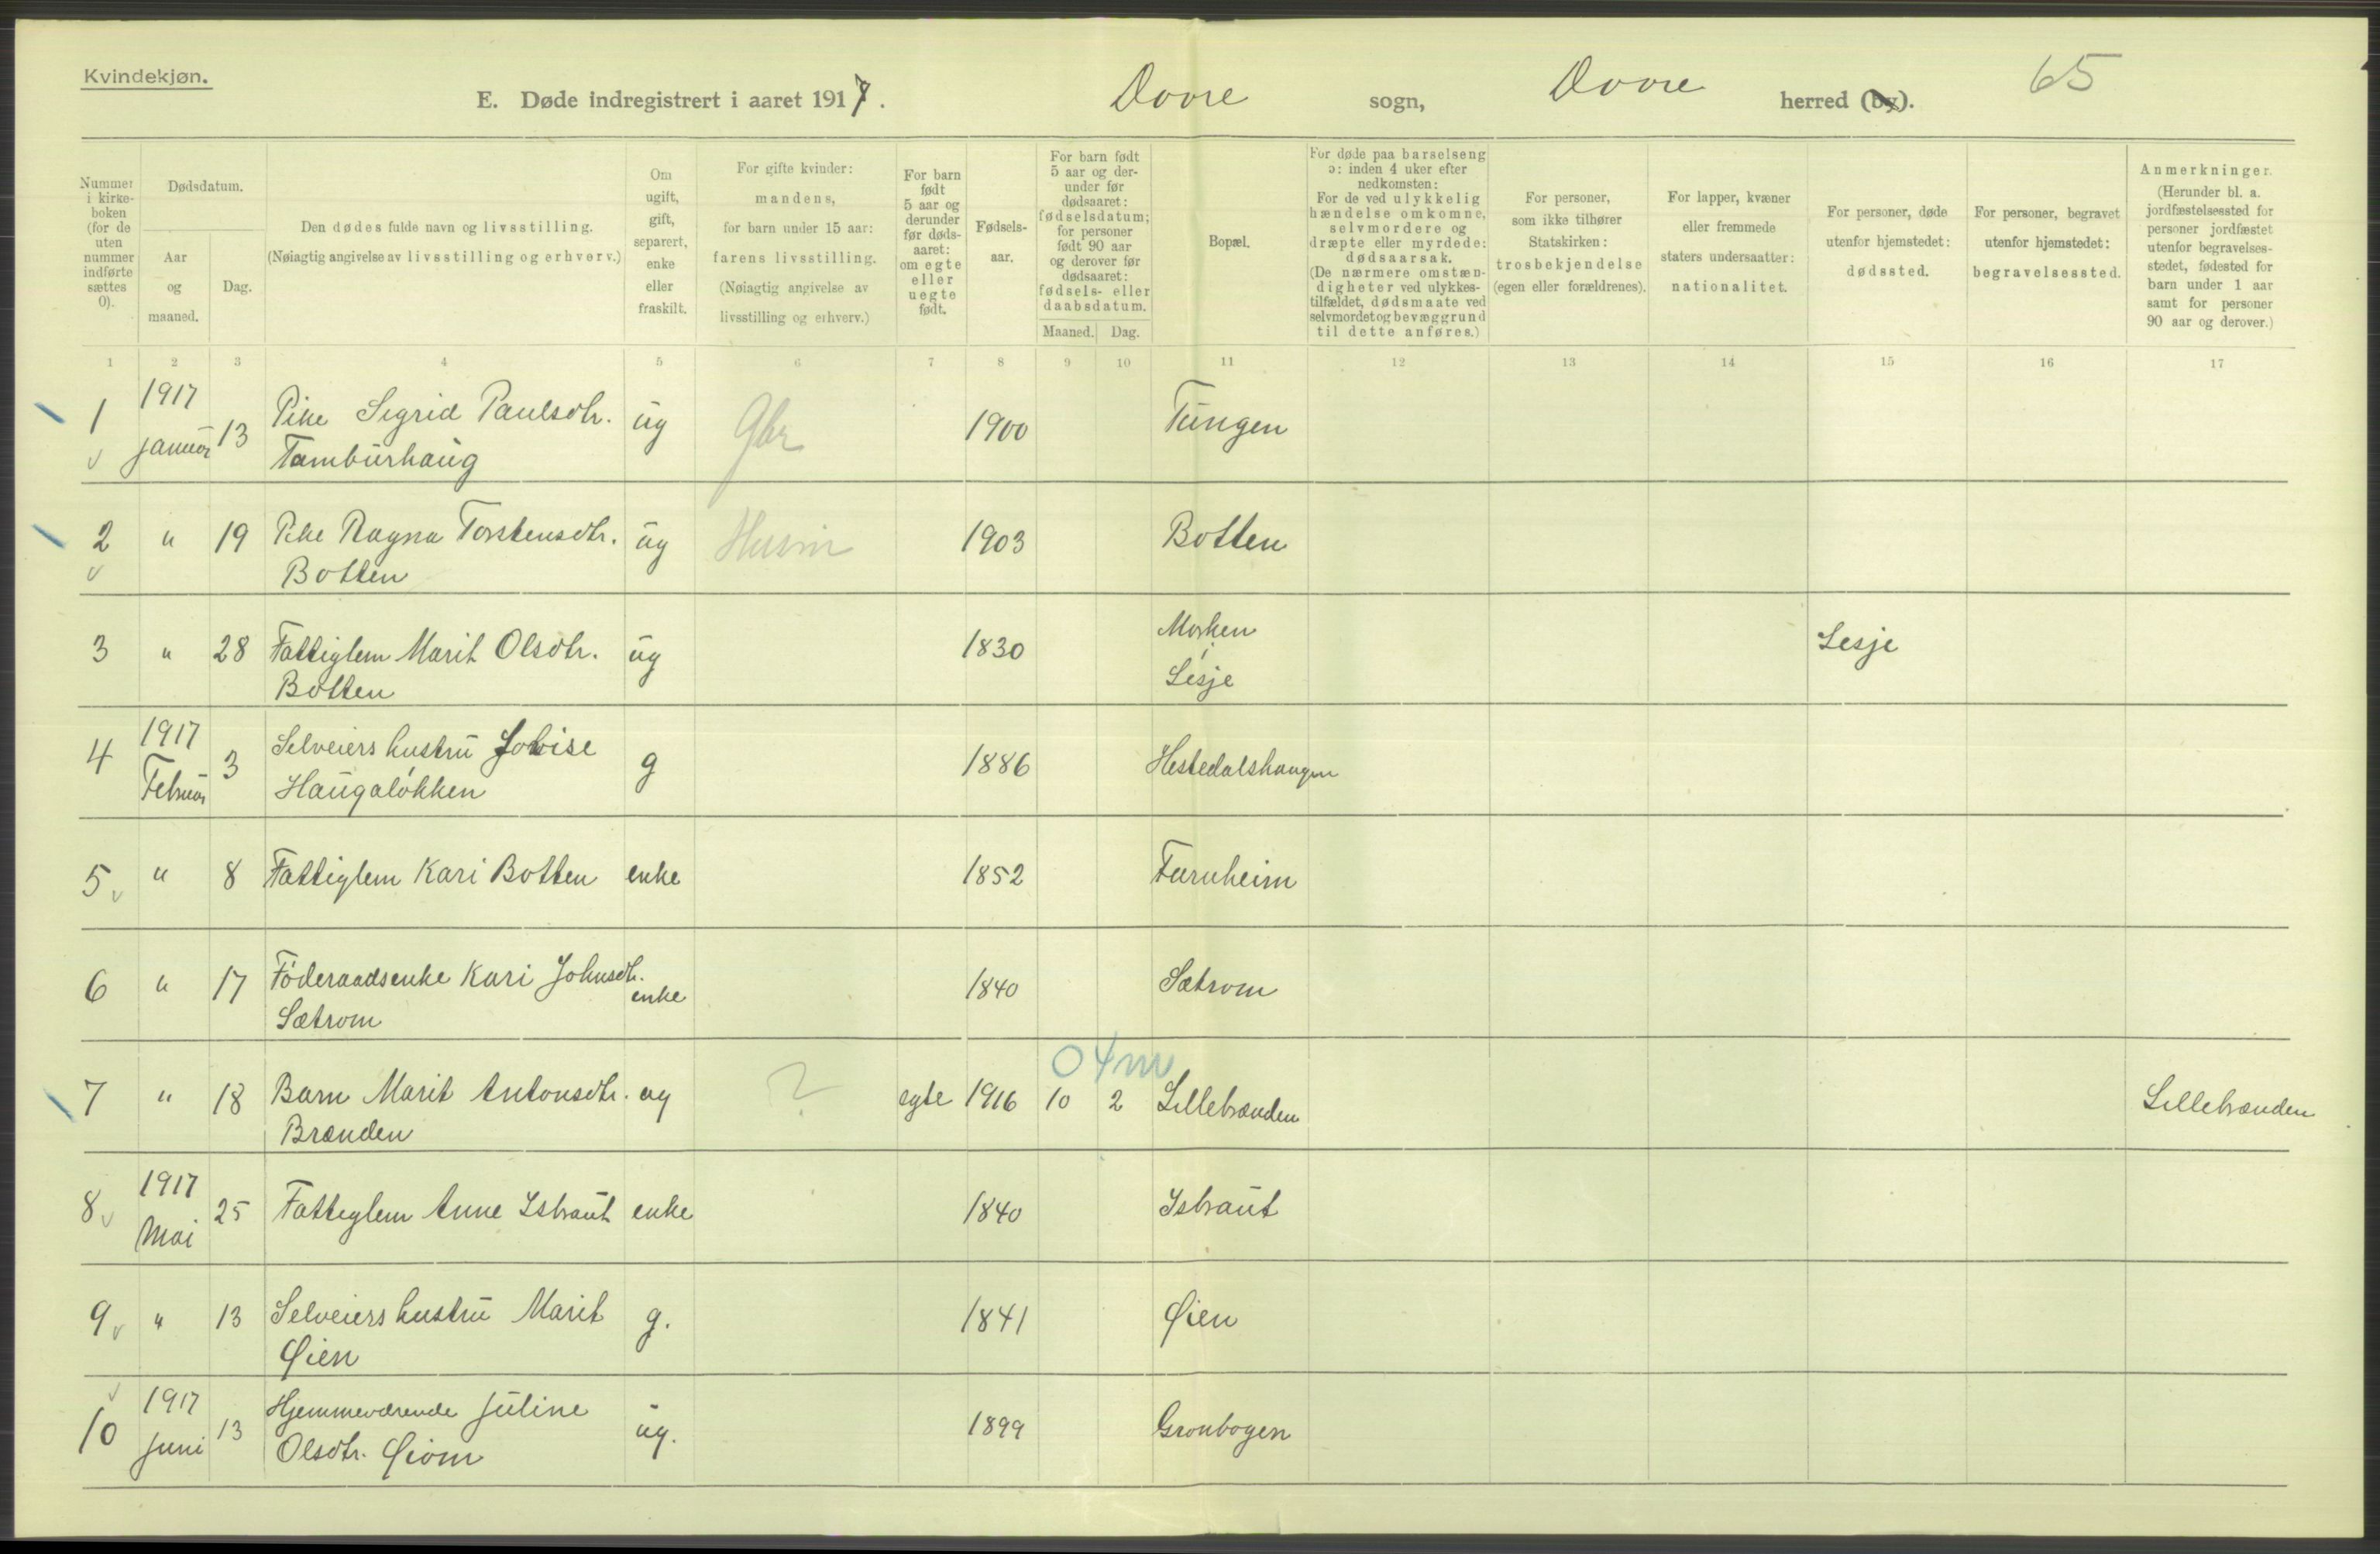 Kvindekjøn.
E. Døde indregistrert i aaret 1917. Dovre sogn, Dovre herred (by). 65
Nummer i kirkeboken (for de uten nummer indførte sættes 0).
Dødsdatum.
Aar og maaned.
Dag.
Den dødes fulde navn og livsstilling.
(Nøiagtig angivelse av livsstilling og erhverv.)
Om ugift, gift, separert, enke eller fraskilt.
For gifte kvinder: mandens, for barn under 15 aar: farens livsstilling. (Nøiagtig angivelse av livsstilling og erhverv.)
For barn født 5 aar og derunder før dødsaaret: om egte eller uegte født.
Fødselsaar.
For barn født 5 aar og derunder før dødsaaret: fødselsdatum; for personer født 90 aar og derover før dødsaaret: fødsels- eller daabsdatum.
Maaned. Dag.
Bopæl.
For døde paa barselseng ɔ: inden 4 uker efter nedkomsten: For de ved ulykkelig hændelse omkomne, selvmordere og dræpte eller myrdede: dødsaarsak. (De nærmere omstændigheter ved ulykkestilfældet, dødsmaate ved selvmordet og bevæggrund til dette anføres.)
For personer, som ikke tilhører Statskirken: trosbekjendelse (egen eller forældrenes).
For lapper, kvæner eller fremmede staters undersaatter: nationalitet.
For personer, døde utenfor hjemstedet: dødssted.
For personer, begravet utenfor hjemstedet: begravelsessted.
Anmerkninger. (Herunder bl. a. jordfæstelsessted for personer jordfæstet utenfor begravelsesstedet, fødested for barn under 1 aar samt for personer 90 aar og derover.)
1 2 3 4 5 6 7 8 9 10 11 12 13 14 15 16 17
1 1917 Januar 13 Pike Sigrid Paulsdtr. ug Gbr 1900 Tungen
Tamburhaug
2 " 19 Pike Ragna Torstensdtr. ug Husm 1903 Botten
Botten
3 " 28 Fattiglem Marit Olsdtr. ug 1830 Morken Lesje Lesje
Botten
4 1917 Februar 3 Selveiers hustru Lovise g 1886 Hestedalshaugen
Haugaløkken
5 " 8 Fattiglem Kari Botten enke 1852 Furuheim
6 " 17 Føderaadsenke Kari Johnsdtr. enke 1840 Sætrom
Sætrom
0 4m
7 " 18 Barn Marit Antonsdtr. ug ? egte 1916 10 2 Lillebrænden Lillebrænden
Brænden
8 1917 Mai 25 Fattiglem Anne Isbraut enke 1840 Isbraut
9 " 13 Selveiers hustru Marit g. 1841 Øien
Øien
10 1917 Juni 13 Hjemmeværende Juline ug. 1899 Grønbogen
Olsdtr. Øiom